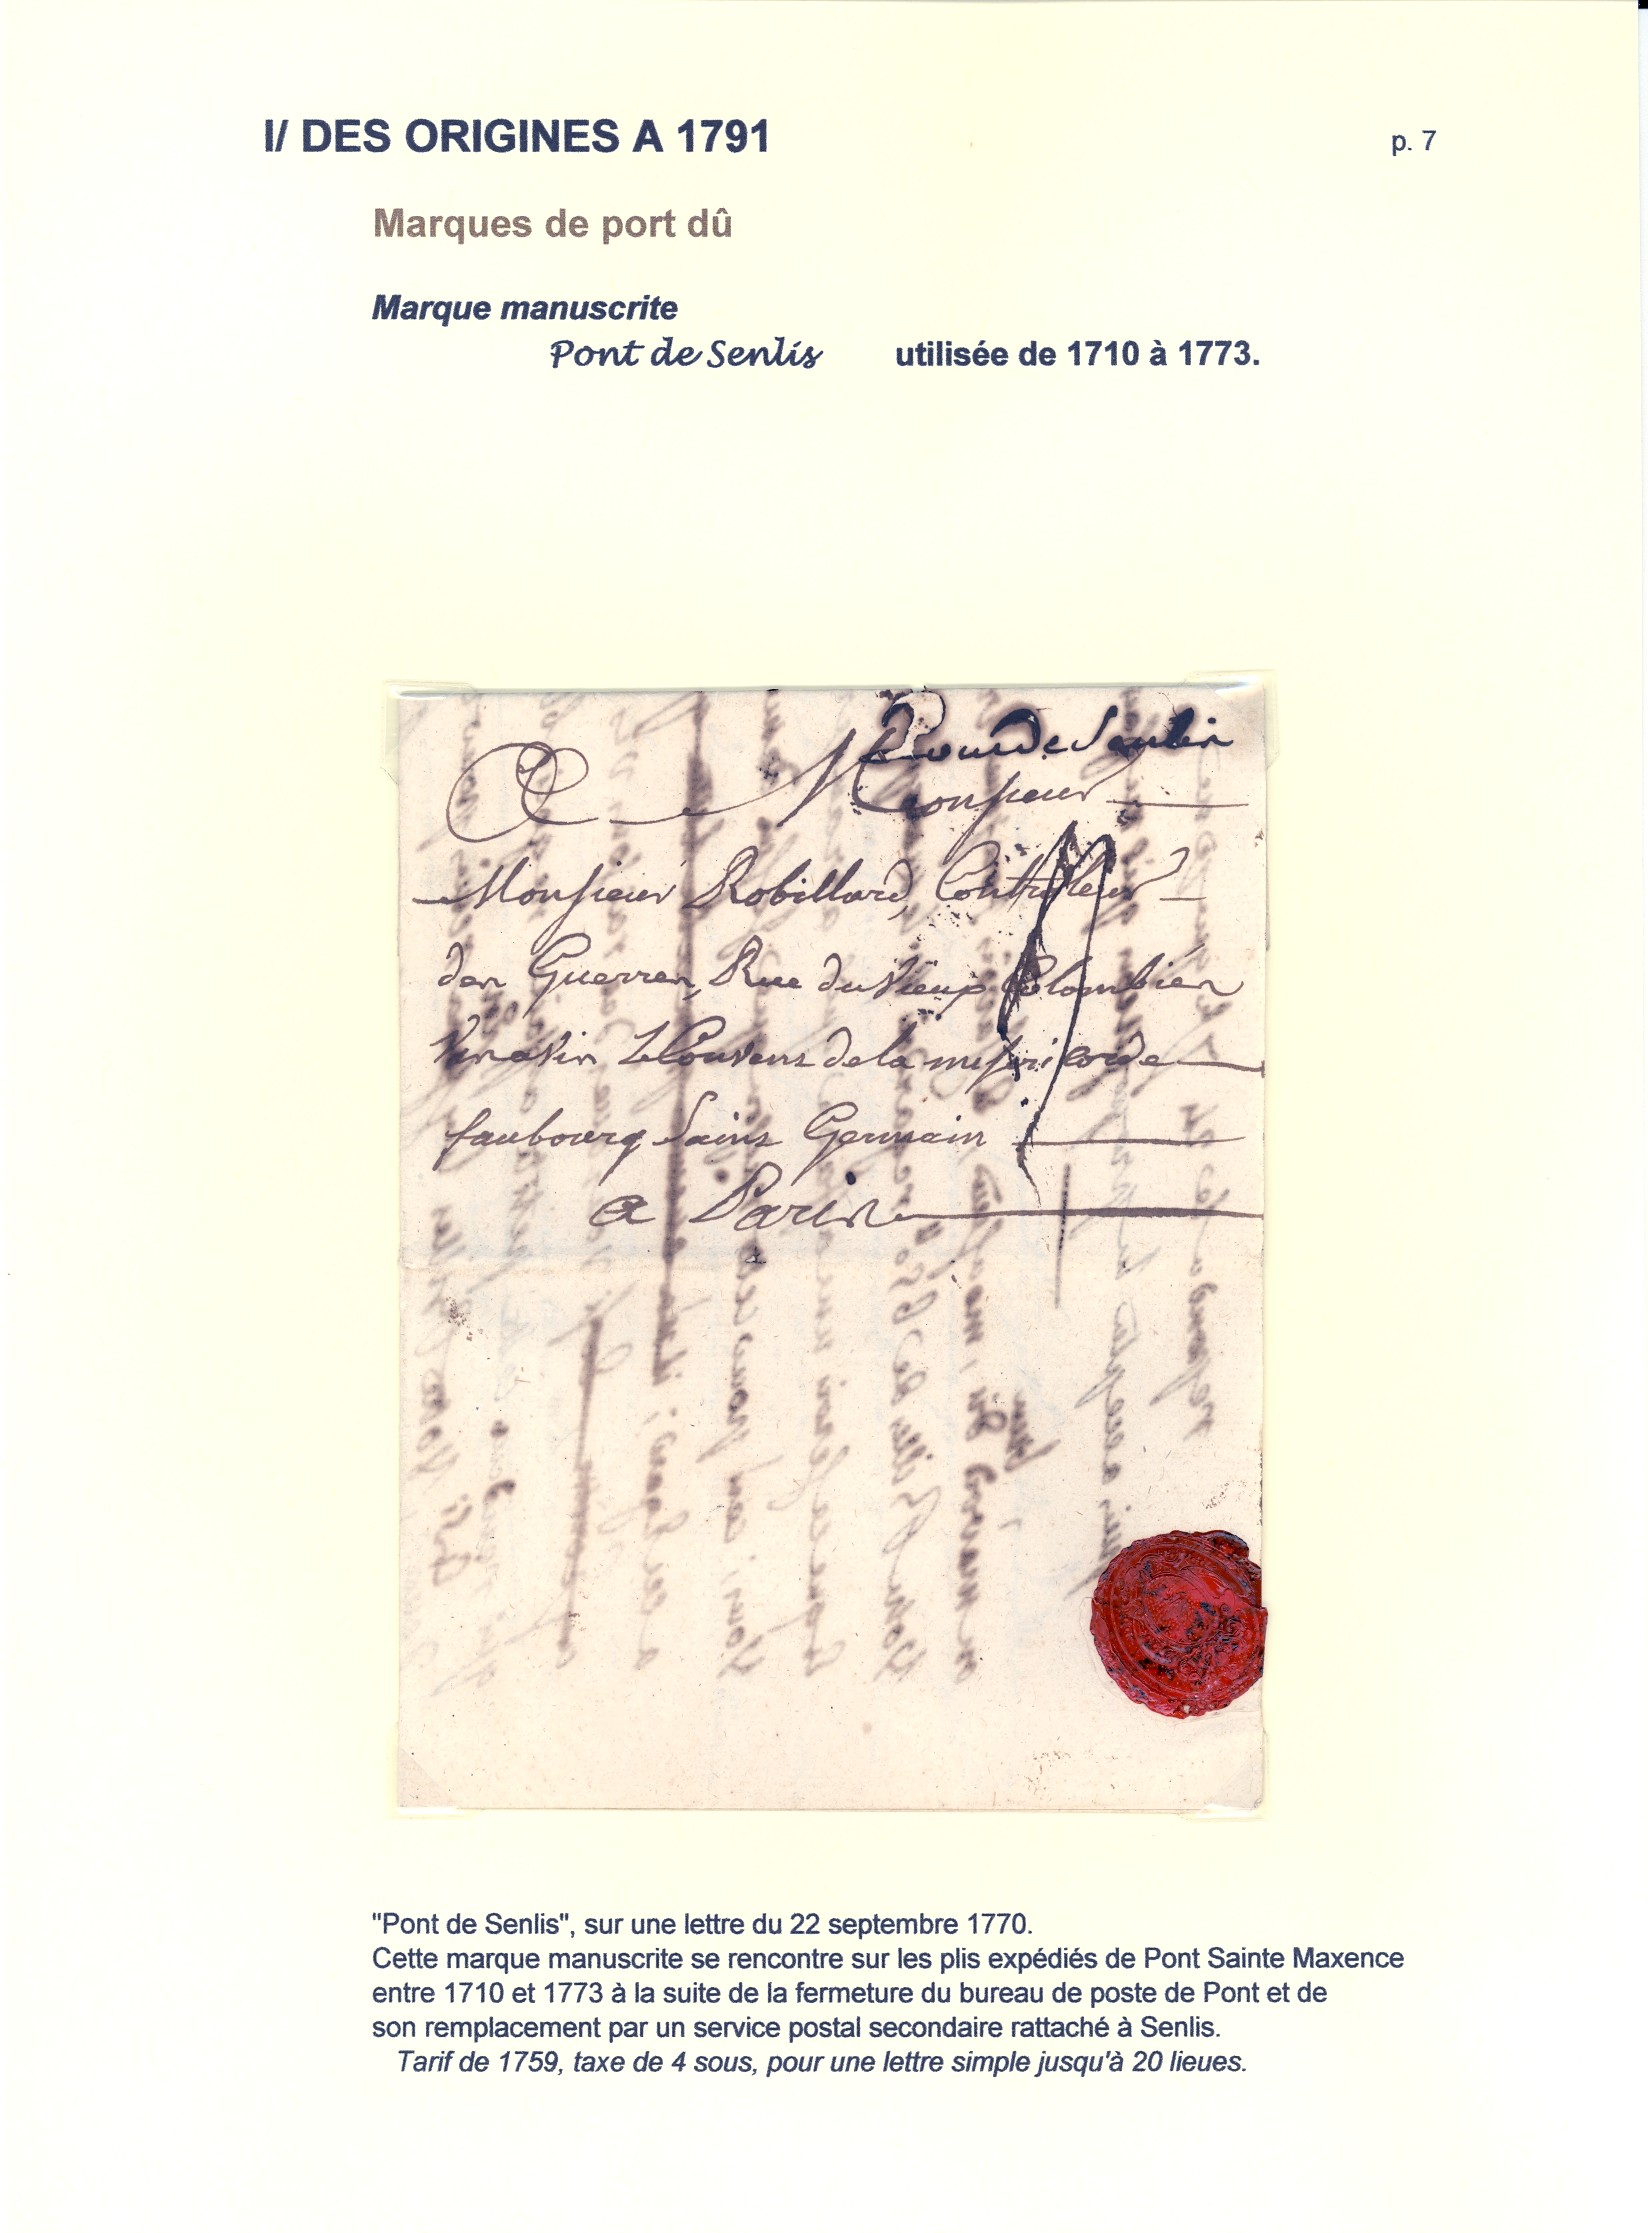 I/ DES ORIGINES A 1791
p. 7
Marques de port dû
Marque manuscrite
Pont de Senlis utilisée de 1710 à 1773.
Pont de Senlis
A Monsieur
Monsieur Robillard, Controlleur
des Guerres, Rue du Vieux Colombier
Vis a Vis Le Couvent de la misericorde
faubourg Saint Germain
a Paris
"Pont de Senlis", sur une lettre du 22 septembre 1770.
Cette marque manuscrite se rencontre sur les plis expédiés de Pont Sainte Maxence
entre 1710 et 1773 à la suite de la fermeture du bureau de poste de Pont et de
son remplacement par un service postal secondaire rattaché à Senlis.
Tarif de 1759, taxe de 4 sous, pour une lettre simple jusqu'à 20 lieues.